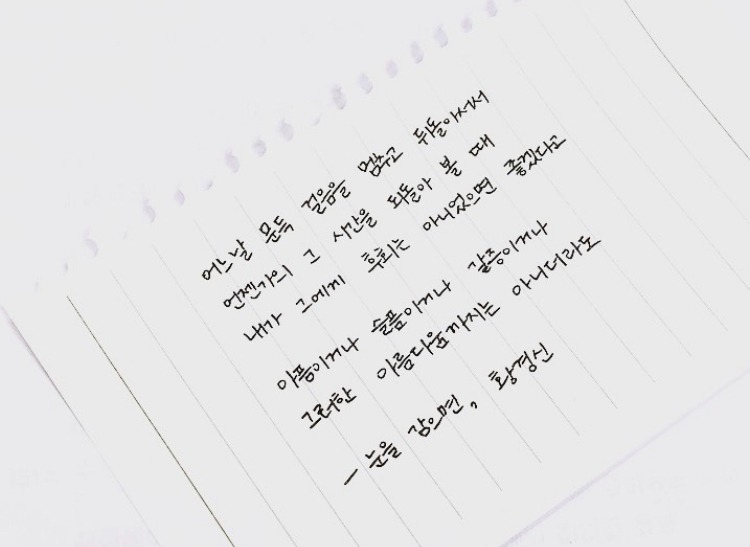 어느날 문득 걸음을 멈추고 뒤돌아서서
언젠가의 그 시간을 되돌아 볼 때
내가 그에게 후회는 아니었으면 좋겠다고
아픔이거나 슬픔이거나 갈증이거나
그러한 아름다움까지는 아니더라도
- 눈을 감으면, 황경신